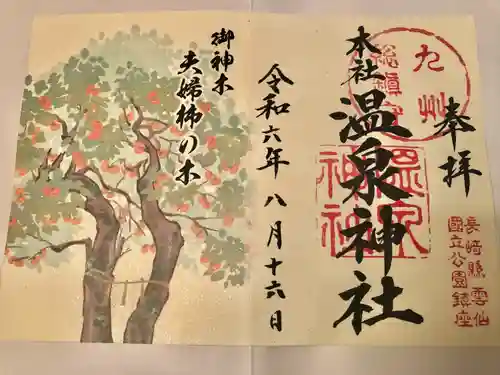 奉拝
九州
総鎮守
長崎縣雲仙
國立公園鎮座
本社
温泉神社
令和六年八月十六日
御神木
夫婦柿の木